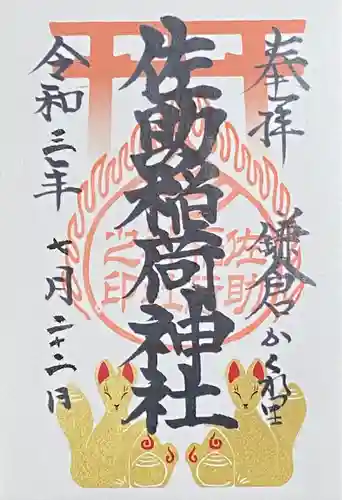 奉拝
鎌倉かくれ里
佐助稲荷神社
佐助
之印
令和三年七月二十二日